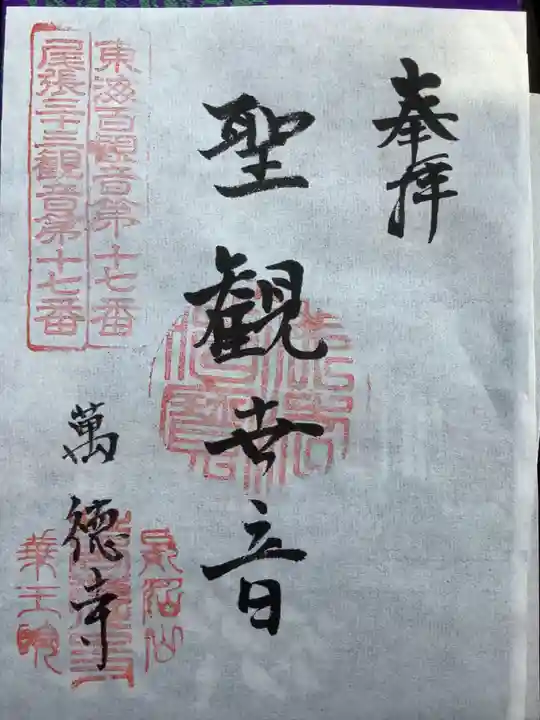 奉拝
聖観世音
東海百観音第十七番
尾張三十三観音第十七番
萬徳寺
華王院